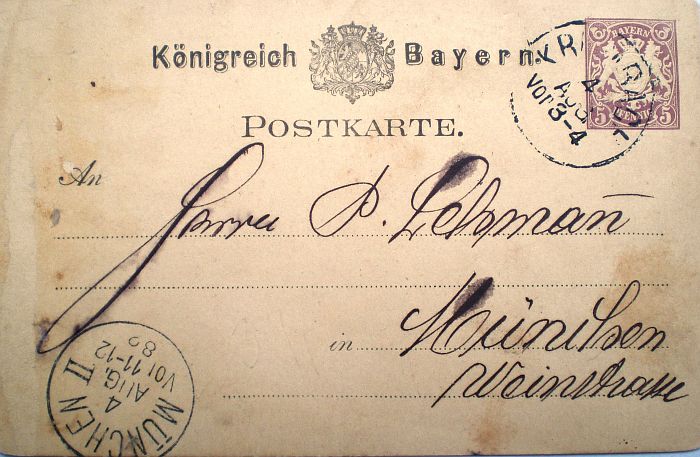 Königreich Bayern.
BAYERN
5 PFENNIG 5
4
AUG.
Vor 3-4
POSTKARTE.
An
Herrn P. Lehmañ
in München
Weinstrasse
MÜNCHEN II
4
AUG.
Vor 11-12
82